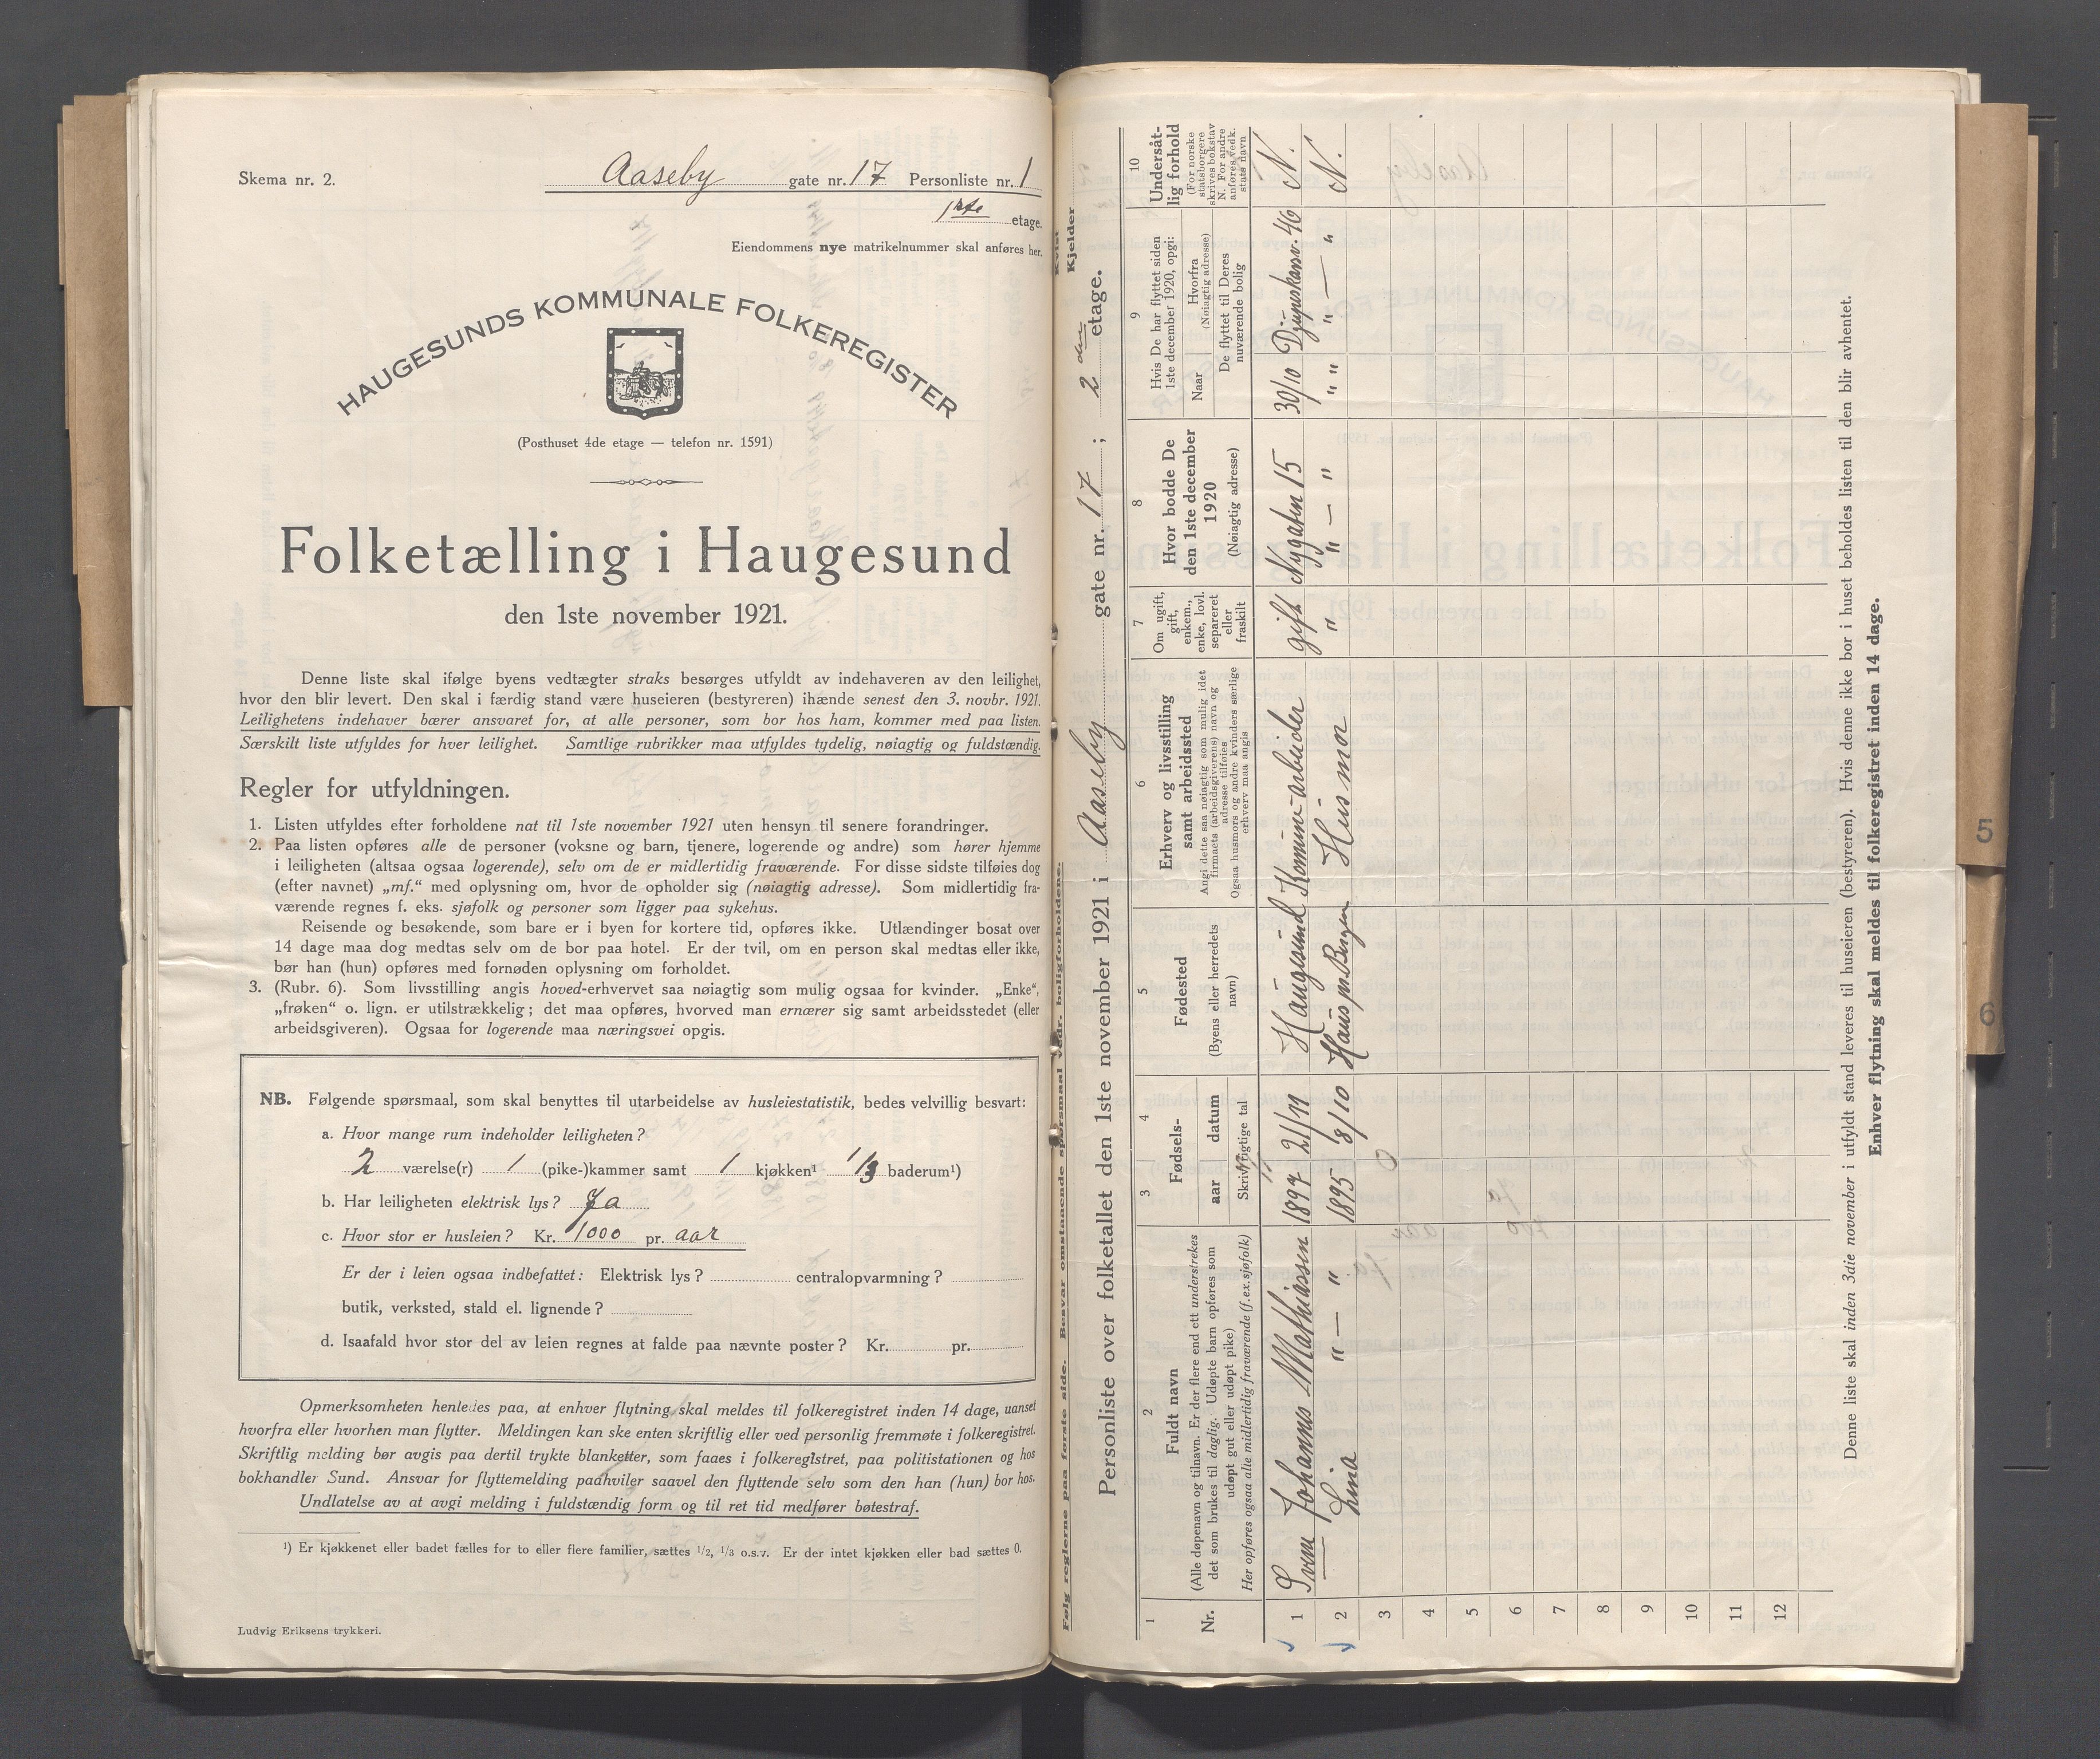 Skema nr. 2.
Aaseby gate nr. 17 Personliste nr. 1
1ste etage.
Eiendommens nye matrikelnummer skal anføres her.
HAUGESUNDS KOMMUNALE FOLKEREGISTER
(Posthuset 4de etage — telefon nr. 1591)
Folketælling i Haugesund
den 1ste november 1921.
Denne liste skal ifølge byens vedtægter straks besørges utfyldt av indehaveren av den leilighet,
hvor den blir levert. Den skal i færdig stand være huseieren (bestyreren) ihænde senest den 3. novbr. 1921.
Leilighetens indehaver bærer ansvaret for, at alle personer, som bor hos ham, kommer med paa listen.
Særskilt liste utfyldes for hver leilighet. Samtlige rubrikker maa utfyldes tydelig, nøiagtig og fuldstændig.
Regler for utfyldningen.
1. Listen utfyldes efter forholdene nat til 1ste november 1921 uten hensyn til senere forandringer.
2. Paa listen opføres alle de personer (voksne og barn, tjenere, logerende og andre) som hører hjemme
i leiligheten (altsaa ogsaa logerende), selv om de er midlertidig fraværende. For disse sidste tilføies dog
(efter navnet) „mf.“ med oplysning om, hvor de opholder sig (nøiagtig adresse). Som midlertidig fra-
værende regnes f. eks. sjøfolk og personer som ligger paa sykehus.
Reisende og besøkende, som bare er i byen for kortere tid, opføres ikke. Utlændinger bosat over
14 dage maa dog medtas selv om de bor paa hotel. Er der tvil, om en person skal medtas eller ikke,
bør han (hun) opføres med fornøden oplysning om forholdet.
3. (Rubr. 6). Som livsstilling angis hoved-erhvervet saa nøiagtig som mulig ogsaa for kvinder. „Enke“,
„frøken“ o. lign. er utilstrækkelig; det maa opføres, hvorved man ernærer sig samt arbeidsstedet (eller
arbeidsgiveren). Ogsaa for logerende maa næringsvei opgis.
NB. Følgende spørsmaal, som skal benyttes til utarbeidelse av husleiestatistik, bedes velvillig besvart:
a. Hvor mange rum indeholder leiligheten?
2 værelse(r) 1 (pike-)kammer samt 1 kjøkken¹ 1/3 baderum¹)
b. Har leiligheten elektrisk lys? Ja
c. Hvor stor er husleien? Kr. 1000 pr. aar
Er der i leien ogsaa indbefattet: Elektrisk lys? centralopvarmning?
butik, verksted, stald el. lignende?
d. Isaafald hvor stor del av leien regnes at falde paa nævnte poster? Kr. pr.
Opmerksomheten henledes paa, at enhver flytning skal meldes til folkeregistret inden 14 dage, uanset
hvorfra eller hvorhen man flytter. Meldingen kan ske enten skriftlig eller ved personlig fremmøte i folkeregistret.
Skriftlig melding bør avgis paa dertil trykte blanketter, som faaes i folkeregistret, paa politistationen og hos
bokhandler Sund. Ansvar for flyttemelding paahviler saavel den flyttende selv som den han (hun) bor hos.
Undlatelse av at avgi melding i fuldstændig form og til ret tid medfører bøtestraf.
¹) Er kjøkkenet eller badet fælles for to eller flere familier, sættes 1/2, 1/3 o.s.v. Er der intet kjøkken eller bad sættes 0.
Ludvig Eriksens trykkeri.
Følg reglerne paa første side. Besvar omstaaende spørsmaal vedr. boligforholdene.
Kvist
Kjelder
Personliste over folketallet den 1ste november 1921 i Aaseby gate nr. 17; 2 den etage.
1
Nr.
2
Fuldt navn
(Alle døpenavn og tilnavn. Er der flere end ett understrekes
det som brukes til daglig. Udøpte barn opføres som
udøpt gut eller udøpt pike)
Her opføres ogsaa alle midlertidig fraværende (f.ex. sjøfolk)
3 4
Fødsels-
aar datum
Skriv tydelige tal
5
Fødested
(Byens eller herredets
navn)
6
Erhverv og livsstilling
samt arbeidssted
Angi dette saa nøiagtig som mulig idet
firmaets (arbeidsgiverens) navn og
adresse tilføies
Ogsaa husmors og andre kvinders særlige
erhverv maa angis
7
Om ugift,
gift,
enkem.,
enke, lovl.
separeret
eller
fraskilt
8
Hvor bodde De
den 1ste december
1920
(Nøiagtig adresse)
9
Hvis De har flyttet siden
1ste december 1920, opgi:
Naar
Hvorfra
(Nøiagtig adresse)
De flyttet til Deres
nuværende bolig
10
Undersåt-
lig forhold
(For norske
statsborgere
skrives bokstav
N. For andre
anføres vedk.
stats navn
1 Sven Johannes Mathiassen 1897 21/11 Haugesund Komune-arbeider gift Nygaten 15 30/10 46 N.
2 Lina " — " 1895 8/10 Haus pr. Bergen Husmor " " — " " " " — " N.
3
4
5
6
7
8
9
10
11
12
Denne liste skal inden 3die november i utfyldt stand leveres til huseieren (bestyreren). Hvis denne ikke bor i huset beholdes listen til den blir avhentet.
Enhver flytning skal meldes til folkeregistret inden 14 dage.
5
6